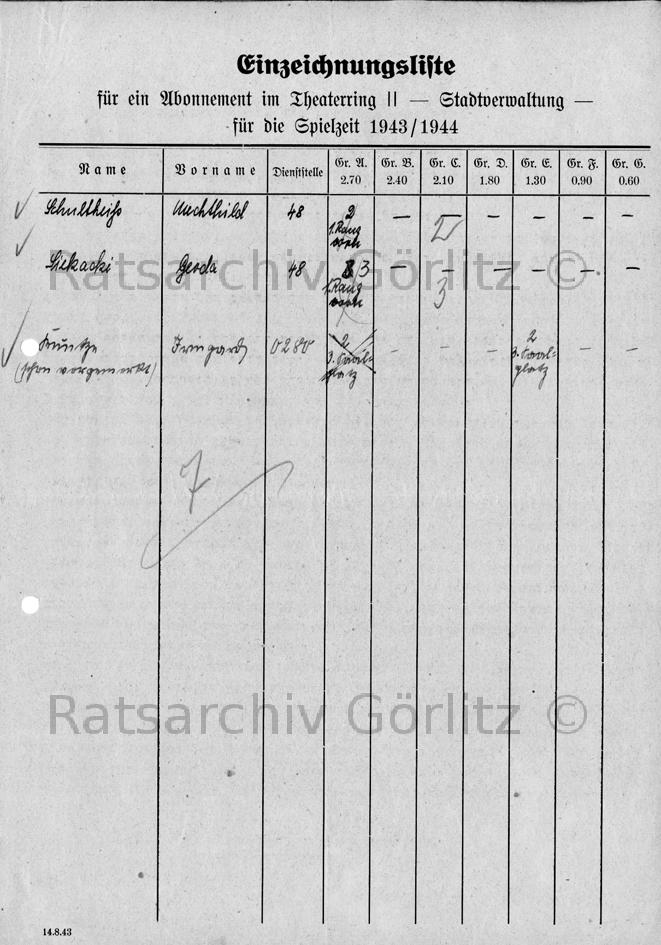 Einzeichnungsliste
für ein Abonnement im Theaterring II — Stadtverwaltung —
für die Spielzeit 1943/1944
Name Vorname Dienststelle Gr. A. 2.70 Gr. B. 2.40 Gr. C. 2.10 Gr. D. 1.80 Gr. E. 1.30 Gr. F. 0.90 Gr. G. 0.60
Schultheiß Mechthild 48 2 — — — — —
1. Rang
vorn
Gerda 48 3 — — — — — —
1. Rang
vorn
3
Ratsarchiv Görlitz ©
Kuntze Irmgard 0280 2 — — 2 — —
(schon vorgemerkt) 3. Saal- 3. Saal-
platz platz
7
Ratsarchiv Görlitz ©
14.8.43